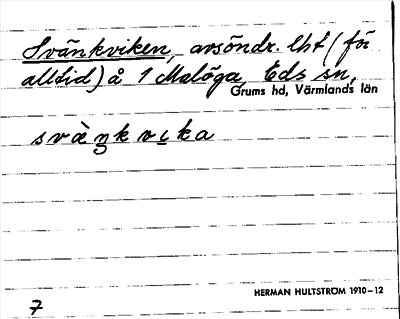 Svänkviken, avsöndr. lht (för
alltid) å 1 Malöga, Eds sn,
Grums hd, Värmlands län
svæ̀ŋkvi̱ka
HERMAN HULTSTRÖM 1910–12
7